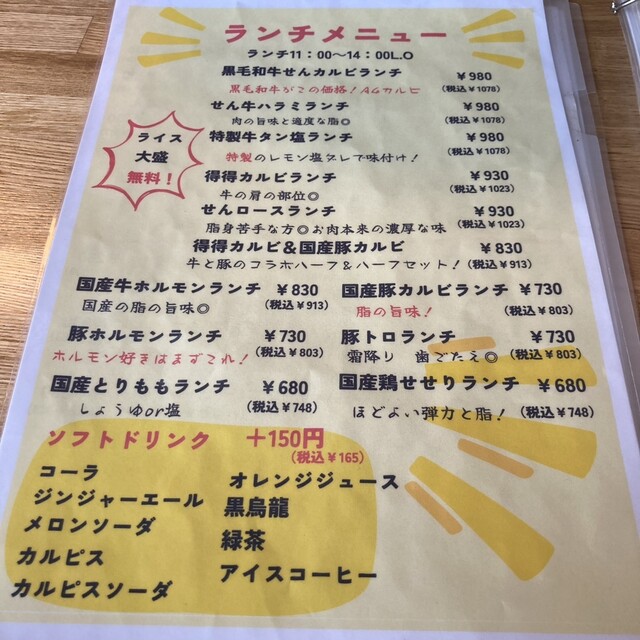 ランチメニュー
ランチ11：00〜14：00L.O
黒毛和牛せんカルビランチ ￥980
黒毛和牛がこの価格！A4カルビ (税込￥1078)
せん牛ハラミランチ ￥980
肉の旨味と適度な脂◎ (税込￥1078)
特製牛タン塩ランチ ￥980
特製のレモン塩タレで味付け！ (税込￥1078)
ライス
大盛
無料！
得得カルビランチ ￥930
牛の肩の部位◎ (税込￥1023)
せんロースランチ ￥930
脂身苦手な方◎お肉本来の濃厚な味 (税込￥1023)
得得カルビ＆国産豚カルビ ￥830
牛と豚のコラボハーフ＆ハーフセット！ (税込￥913)
国産牛ホルモンランチ ￥830
国産の脂の旨味◎ (税込￥913)
国産豚カルビランチ ￥730
脂の旨味！ (税込￥803)
豚ホルモンランチ ￥730
ホルモン好きはまずこれ！ (税込￥803)
豚トロランチ ￥730
霜降り 歯ごたえ◎ (税込￥803)
国産とりももランチ ￥680
しょうゆor塩 (税込￥748)
国産鶏せせりランチ ￥680
ほどよい弾力と脂！ (税込￥748)
ソフトドリンク ＋150円
(税込￥165)
コーラ
ジンジャーエール
メロンソーダ
カルピス
カルピスソーダ
オレンジジュース
黒烏龍
緑茶
アイスコーヒー